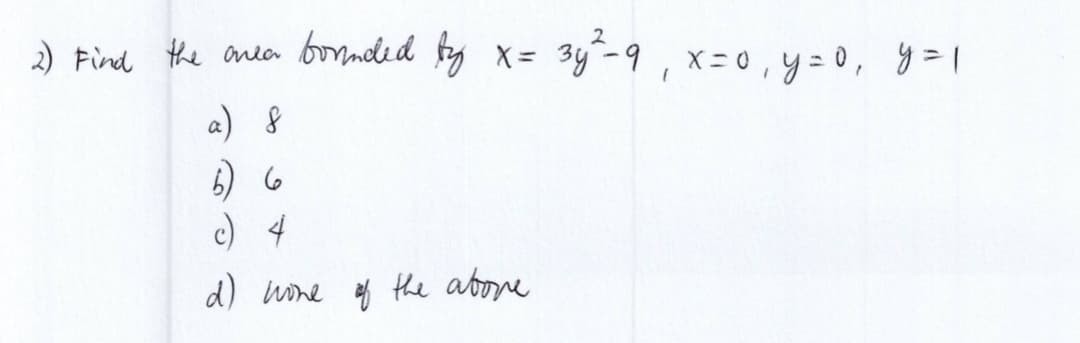 2) Find the area bounded by x = 3y²-9, x=0, y=0, y=1
a) 8
b) 6
c) 4
d) none of the above